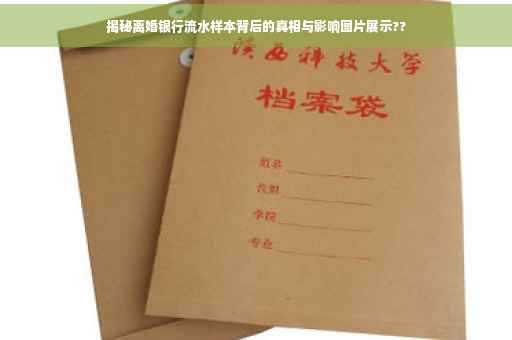 揭秘离婚银行流水样本背后的真相与影响图片展示??
陕西科技大学
档案袋
姓名
学院
专业